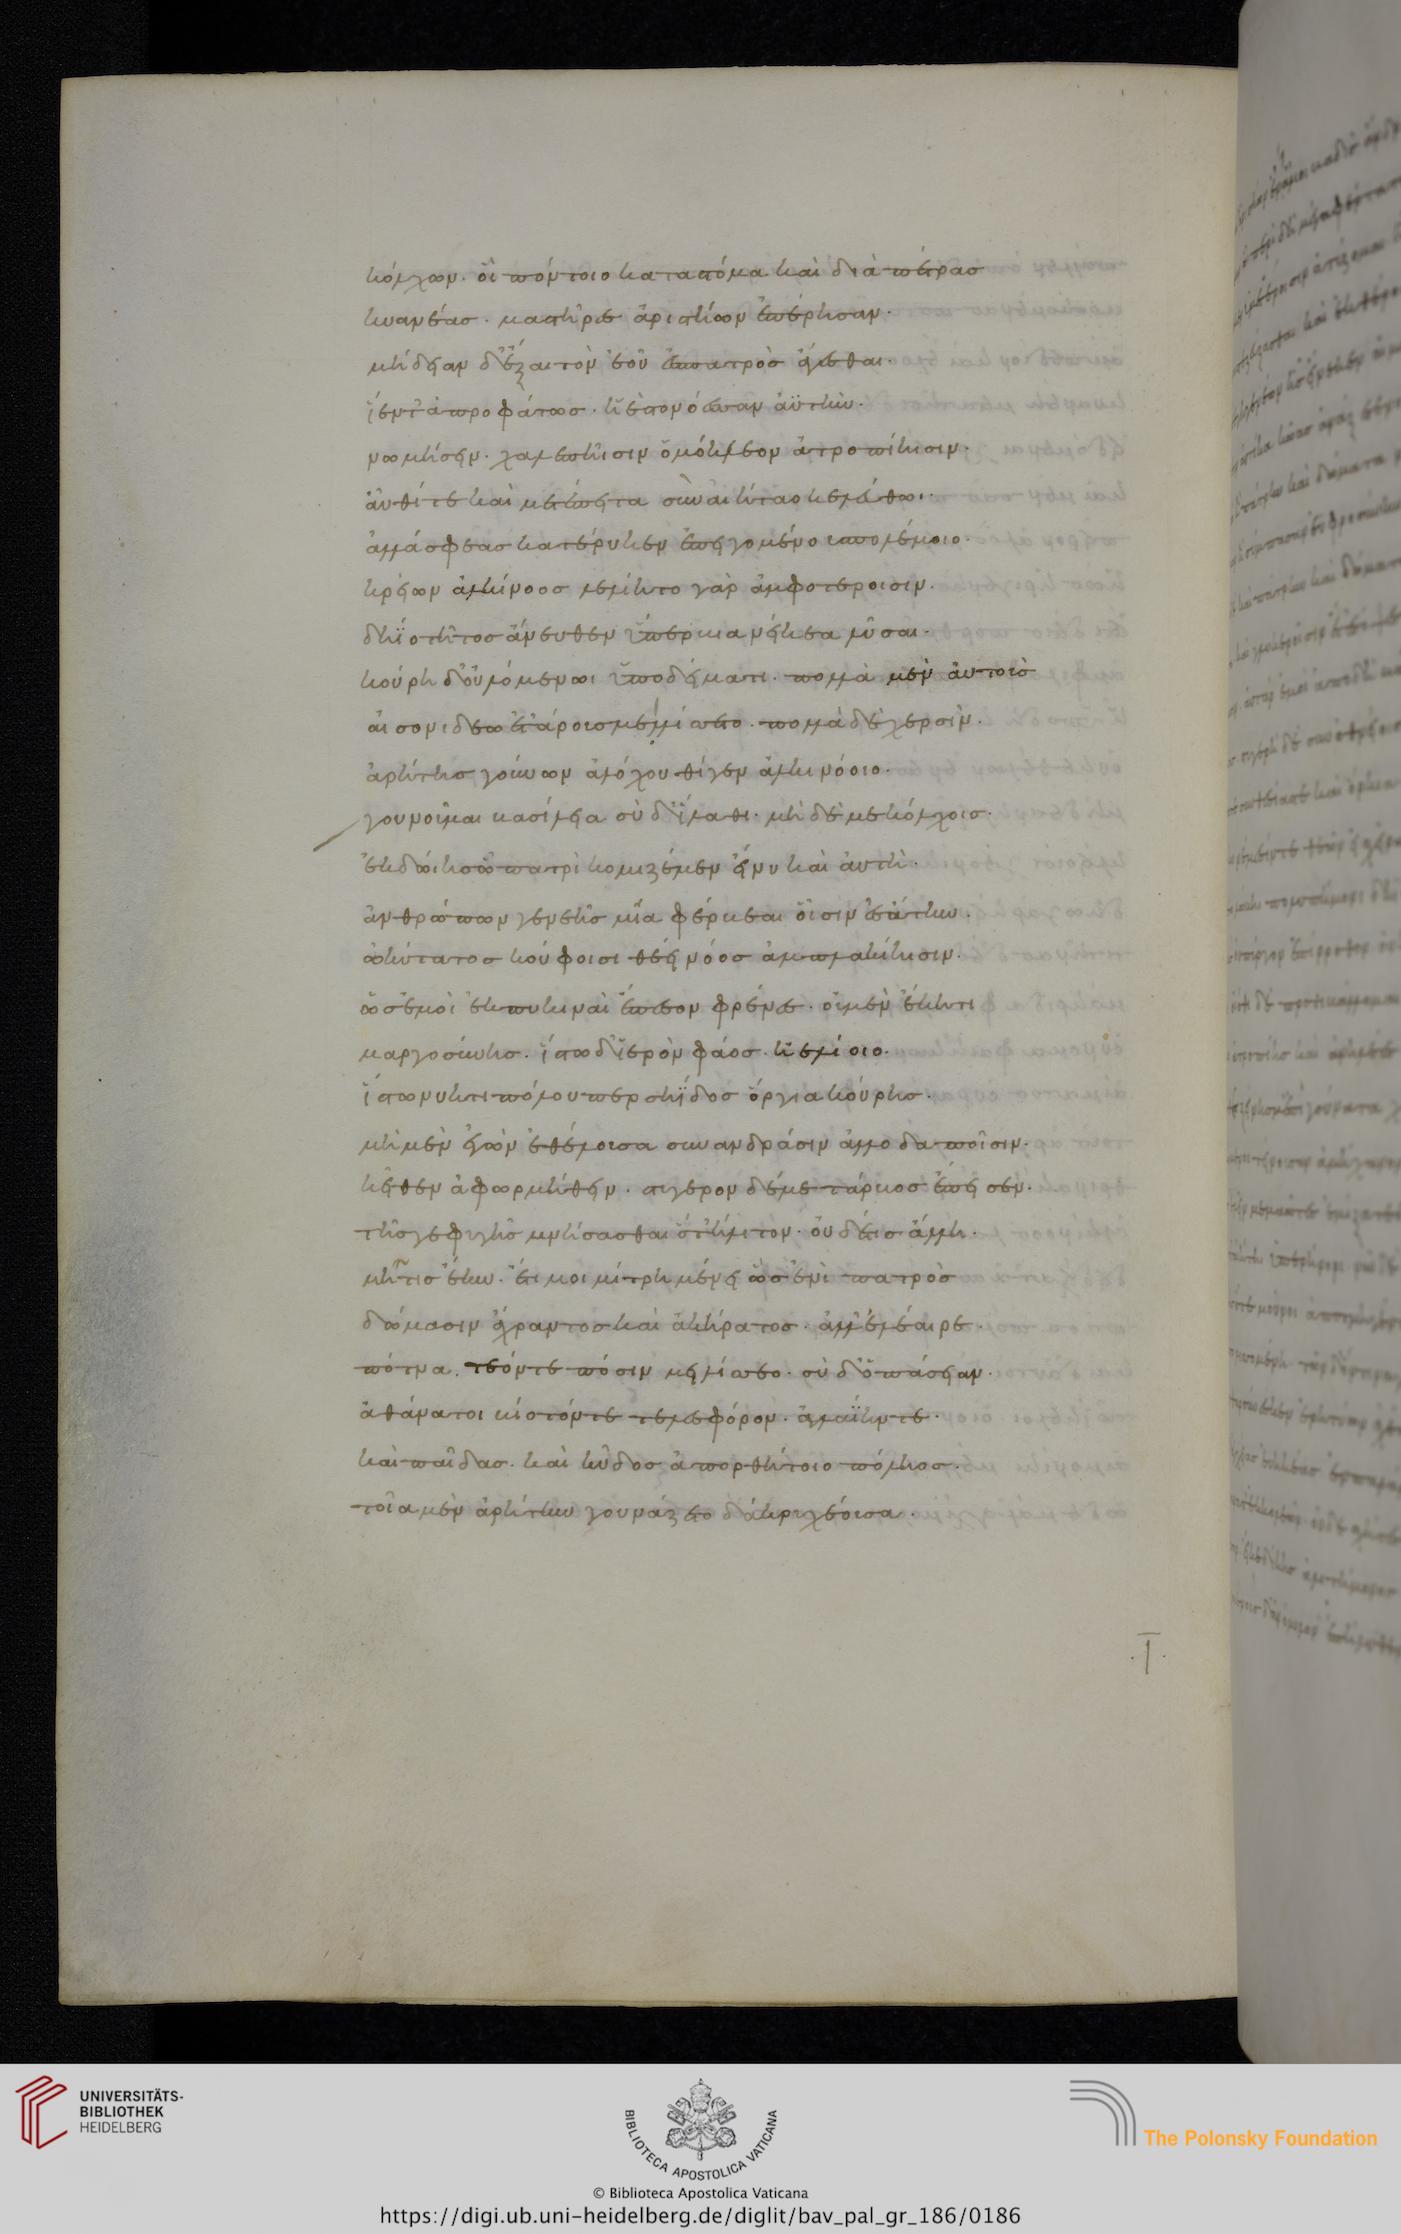 κόλχων. οἳ πόντοιο κατὰ στόμα καὶ διὰ πέτρας
κυανέας. μαστῆρες ἀριστήων ἐπέρησαν.
μήδειαν δ' ἔξαιτον ἑοῦ ἐς πατρὸς ἄγεσθαι.
ἵεντ' ἀπροφάτως. ἢ ἔστονόεσσαν ἀϋτήν.
νωμήσειν. χαλεπῆισιν ὁμόκλεον ἀτροπίηισιν.
αὖθί τε καὶ μετέπειτα σὺν αἰήταο κελεύθωι.
ἀλλά σφεας κατέρυκεν ἐπειγομένους πολέμοιο.
κρείων ἀλκίνοος λελίητο γὰρ ἀμφοτέροισιν.
δηϊοτῆτος ἄνευθεν ὑπέρβια νείκεα λῦσαι.
κούρη δ' οὐλομένωι ὑπὸ δείματι. πολλὰ μὲν αὐτοὺς
αἰσονίδεω ἑτάρους μειλίσσετο. πολλὰ δὲ χερσὶν.
ἀρήτης γούνων ἀλόχου θίγεν ἀλκινόοιο.
γουνοῦμαι βασίλεια σὺ δ' ἵλαθι. μὴ δέ με κόλχοις.
ἐκδώηις ὧ πατρὶ κομιζέμεν εἴ νυ καὶ αὐτὴ.
ἀνθρώπων γενεῆς μία φέρβεαι οἷσιν ἐς ἄτην.
ὠκύτατος κούφοισι θέει νόος ἀμπλακίηισιν.
ὡς ἐμοὶ ἐκ πυκιναὶ ἔπεσον φρένες. οὐ μὲν ἕκητι
μαργοσύνης. ἴστω δ' ἱερὸν φάος. ἠελίοιο.
ἴστω νυκτιπόλου περσηΐδος ὄργια κούρης.
μὴ μὲν ἐγὼν ἐθέλουσα σὺν ἀνδράσιν ἀλλοδαποῖσιν.
κεῖθεν ἀφωρμήθην. στυγερὸν δέ με τάρβος ἔπεισεν.
τῆσγε φυγῆς μνήσασθαι ὅτ' ἤλιτον. οὐδέ τις ἄλλη.
μῆτις ἔην. ἔτι μοι μίτρη μένει ὡς ἐνὶ πατρὸς
δώμασιν ἄχραντος καὶ ἀκήρατος. ἀλλ' ἐλέαιρε.
πότνα. τεόν τε πόσιν μειλίσσεο. σὺ δ' ὀπάσειαν.
ἀθάνατοι βίοτόν τε τελεσφόρον. ἀγλαΐην τε.
καὶ παῖδας. καὶ κῦδος ἀπορθήτοιο πόληος.
τοῖα μὲν ἀρήτην γουνάζετο δάκρυ χέουσα.
UNIVERSITÄTS-
BIBLIOTHEK
HEIDELBERG
BIBLIOTECA APOSTOLICA VATICANA
The Polonsky Foundation
© Biblioteca Apostolica Vaticana
https://digi.ub.uni-heidelberg.de/diglit/bav_pal_gr_186/0186